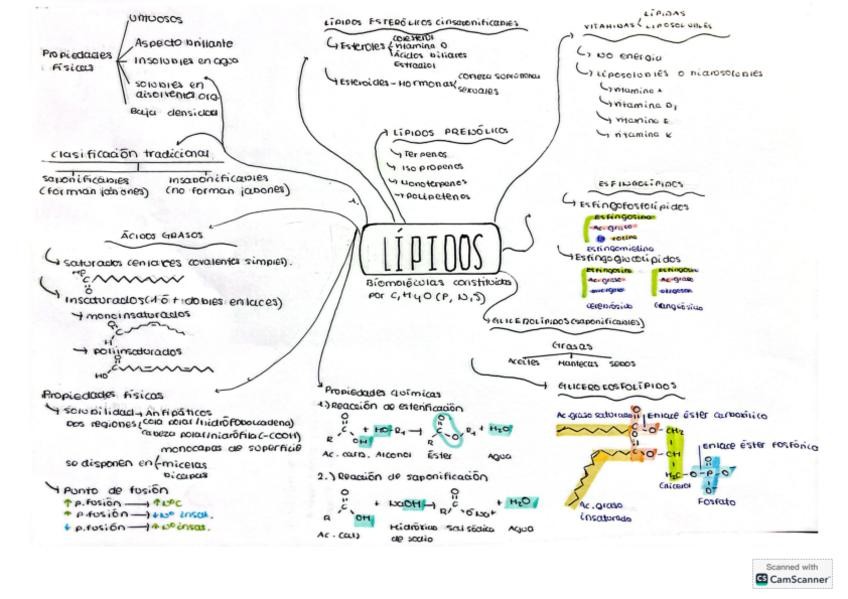 Propiedades físicas
untuosos
Aspecto brillante
Insolubles en agua
solubles en disolvente org.
Baja densidad
clasificación tradicional
saponificables (forman jabones)
insaponificables (no forman jabones)
ÁCIDOS GRASOS
saturados (enlaces covalentes simples).
Insaturados (1 ó + dobles enlaces)
monoinsaturados
poliinsaturados
HO
Propiedades físicas
solubilidad → Anfipáticos
Dos regiones
cabeza polar/hidrófila (-COOH)
monocapas de superficie
se disponen en
micelas
bicapas
Punto de fusión
↑ p.fusión → ↑ NºC
↑ p.fusión → ↓ Nº insat.
↓ p.fusión → ↑ Nº insat.
LÍPIDOS ESTERÓLICOS (insaponificables)
Esteroles
colesterol
vitamina D
Ácidos biliares
Estradiol
Esteroides - Hormonas
corteza suprarrenal
sexuales
LÍPIDOS PRENÓLICOS
Terpenos
Isoprenos
Monoterpenos
LÍPIDOS
Biomoléculas constituidas
por C, H y O (P, N, S)
VITAMINAS LIPOSOLUBLES
No energía
Liposolubles o hidrosolubles
vitamina A
vitamina E
vitamina K
ESFINGOLÍPIDOS
Esfingofosfolípidos
Esfingosina
Ac. graso
Esfingomielina
Esfingoglucolípidos
Esfingosina
Ac. graso
Cerebrósido
Esfingosina
Ac. graso
Gangliósido
GLICEROLÍPIDOS (saponificables)
Grasas
Aceites
Mantecas
Sebos
GLICEROFOSFOLÍPIDOS
Ac. graso saturado
Enlace éster carboxílico
Enlace éster fosfórico
Glicerol
Fosfato
Ac. graso
insaturado
Propiedades químicas
1.) Reacción de esterificación
Ac. carb. Alcohol Éster Agua
2.) Reacción de saponificación
Ac. carb. Hidróxido de sodio Sal sódica Agua
Scanned with
CS CamScanner